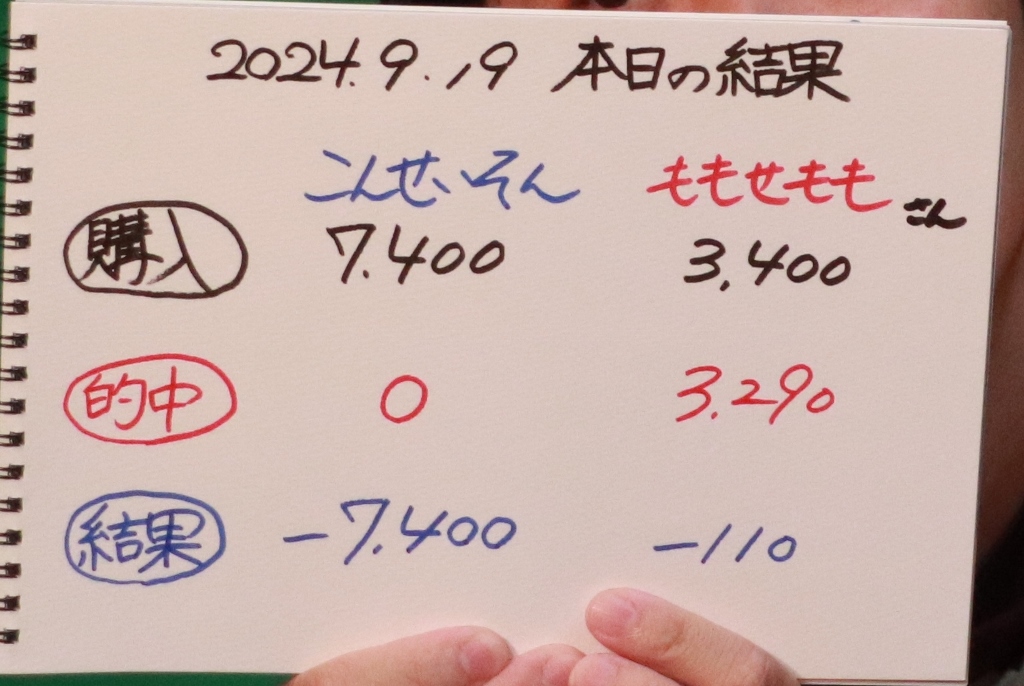 2024.9.19 本日の結果
こんせいそん ももせももさん
購入 7.400 3,400
的中 0 3.290
結果 -7.400 -110